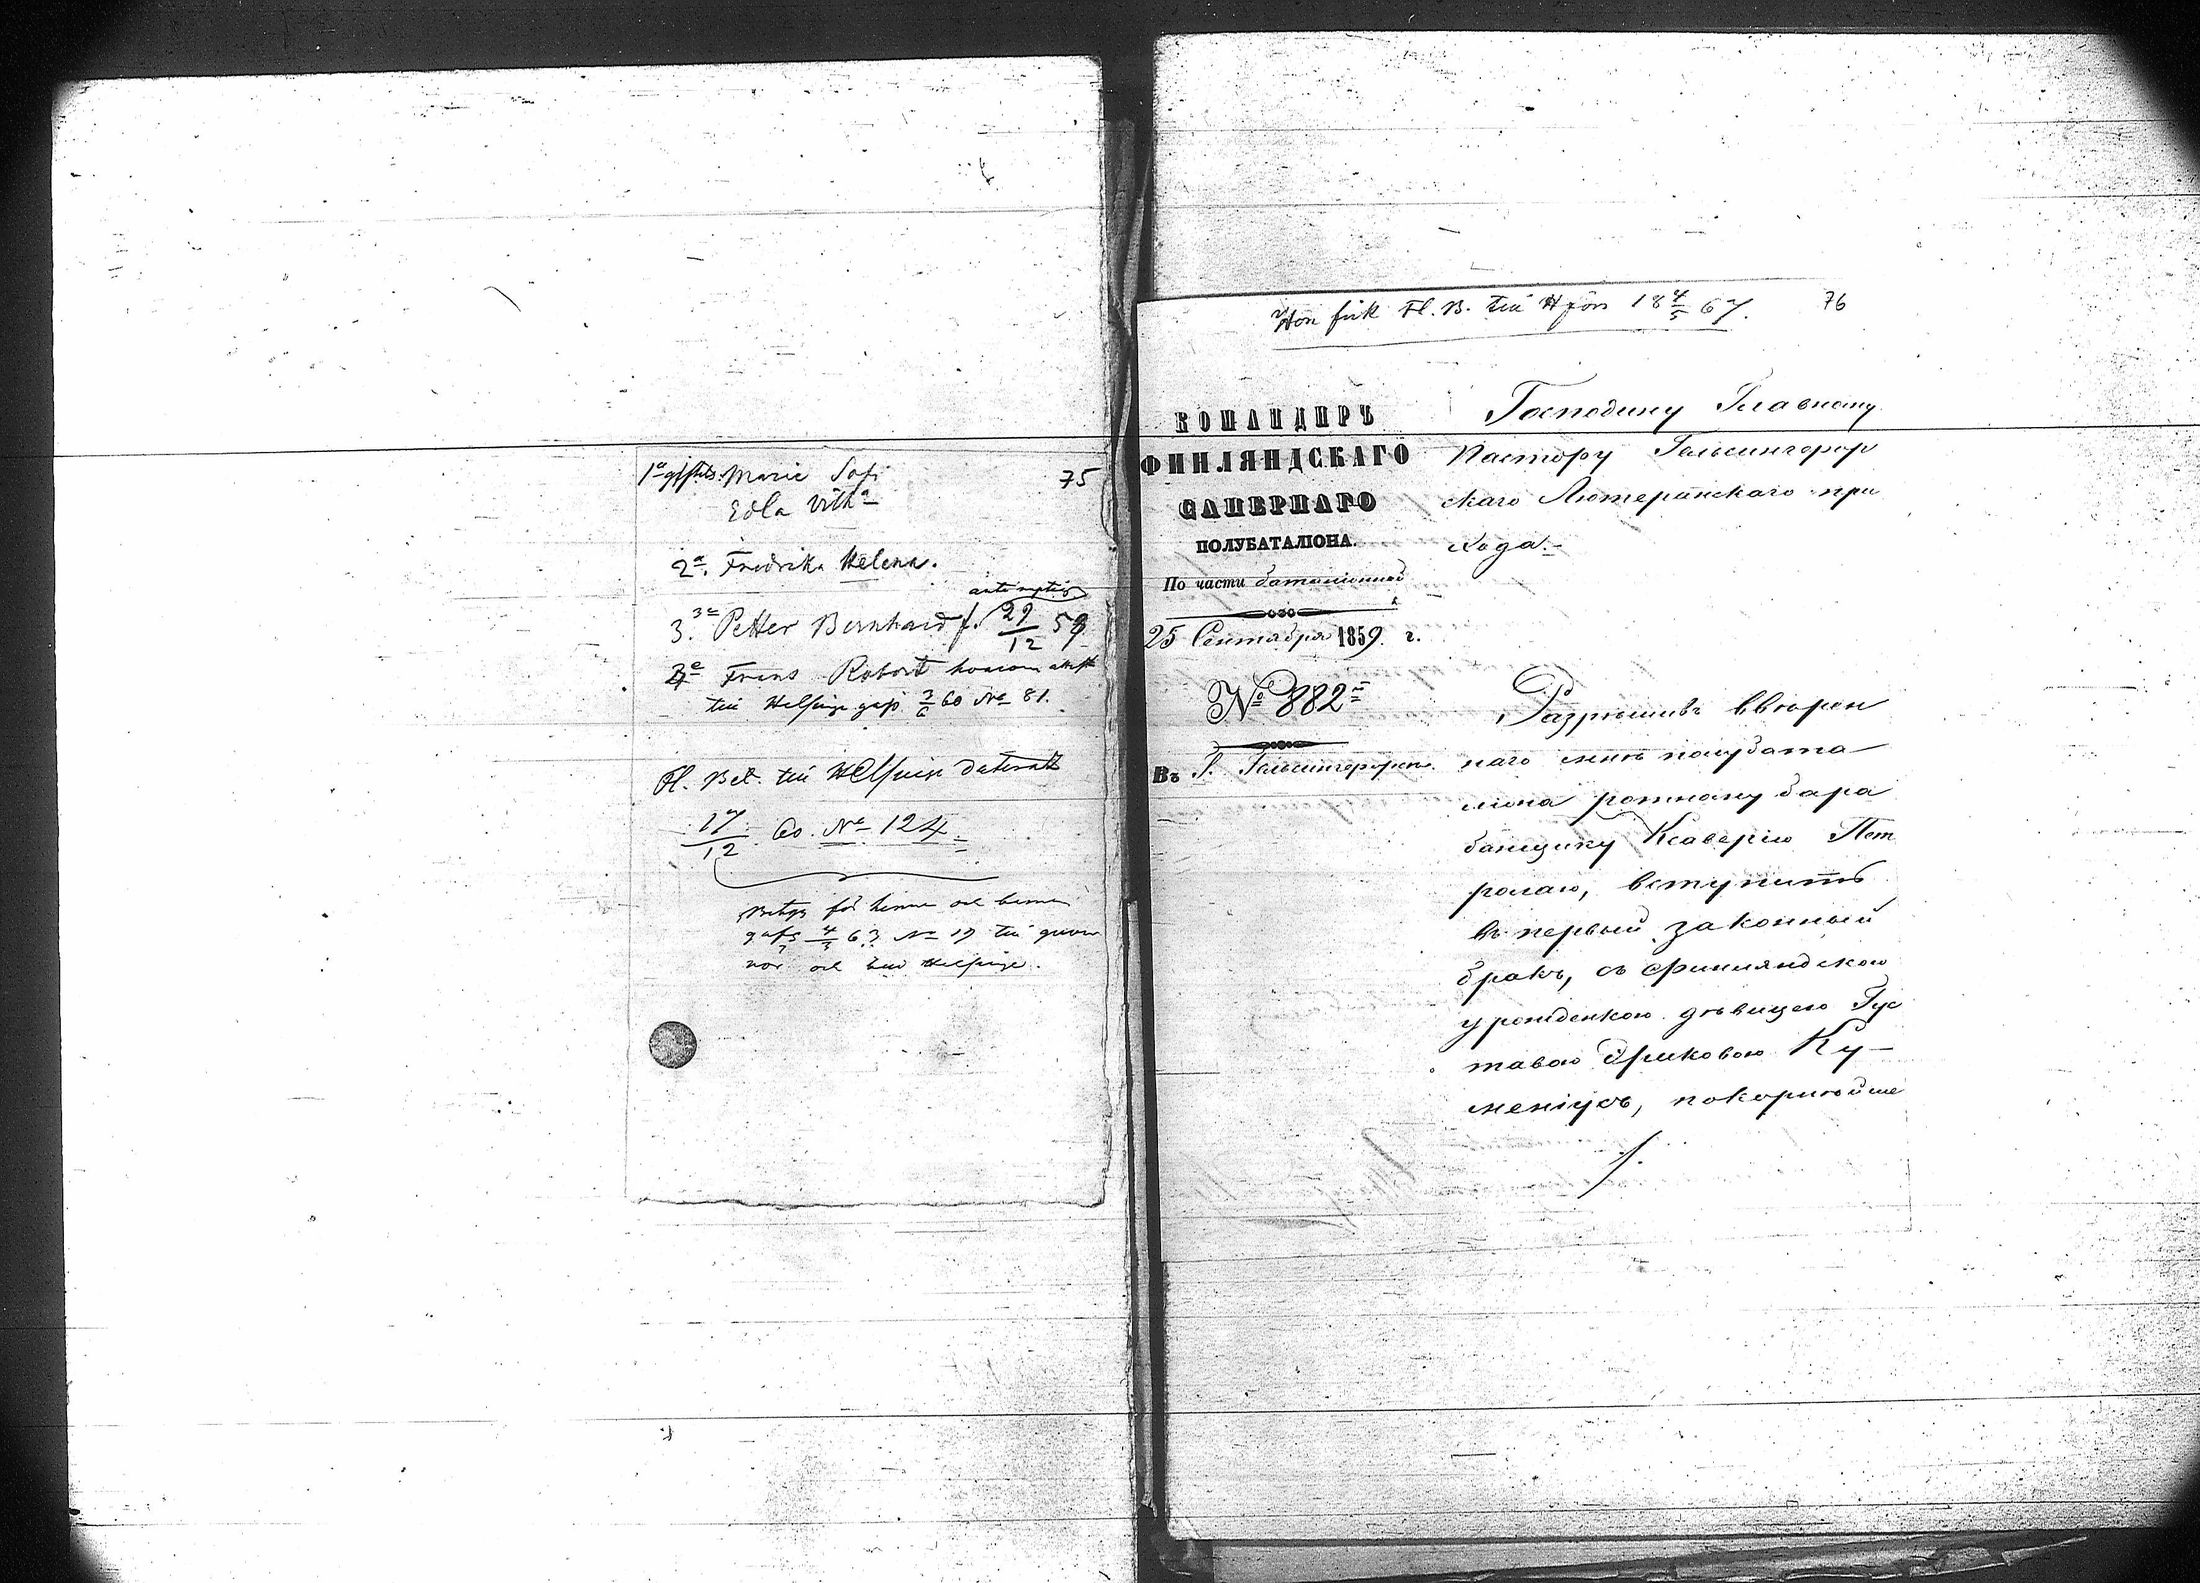 75
Marie Sofi
Edla Vilha
2a. Fredrika Helena.
3. 3e Petter Bernhard f. 29/12 59
Frans Robert
till Helsinge 3/6 60 No 81.
Fl. Bet. till Helsinge daterat
17/12 60. No 124
Betyg för henne och barnen
4/3 63 No 19 till
och Helsinge.
76
Hon fick Fl. B. till Hfors 18 4/5 67.
КОМАНДИРЪ
ФИНЛЯНДСКАГО
САПЕРНАГО
ПОЛУБАТАЛІОНА.
По части баталіонной
25 Сентября 1859 г.
№ 882
Въ Г. Гельсингфорсъ.
Господину Главному
Пастору Гельсингфор
скаго Лютеранскаго при
хода.-
Разрѣшивъ ввѣрен
наго мнѣ полубата
ліона ротному бара
банщику Ксаверію Пет
ролаю, вступить
въ первый законный
бракъ, съ финляндскою
уроженкою дѣвицею Гус
тавою Эриковою Ку-
меніусъ, покорнѣйше